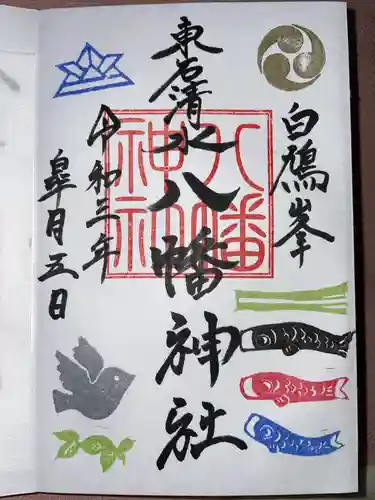 白鳩峯
東石清水八幡神社
八幡神社
令和三年
皐月五日